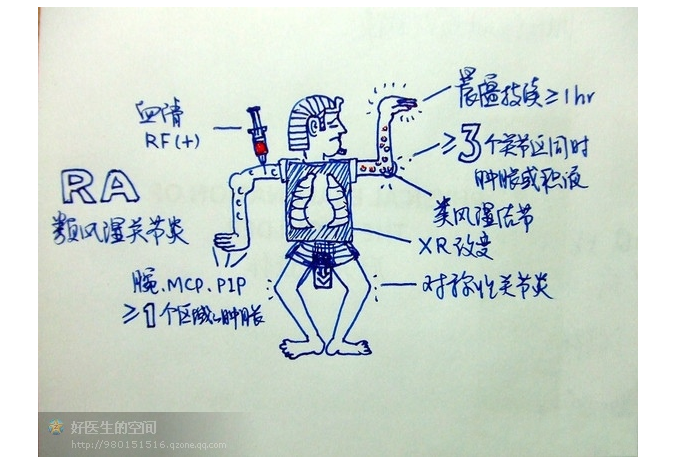 血清
RF(+)
晨僵持续≥1hr
≥3个关节区同时
肿胀或积液
RA
类风湿关节炎
类风湿结节
XR改变
腕.MCP.PIP
≥1个区域肿胀
对称性关节炎
好医生的空间
http://980151516.qzone.qq.com